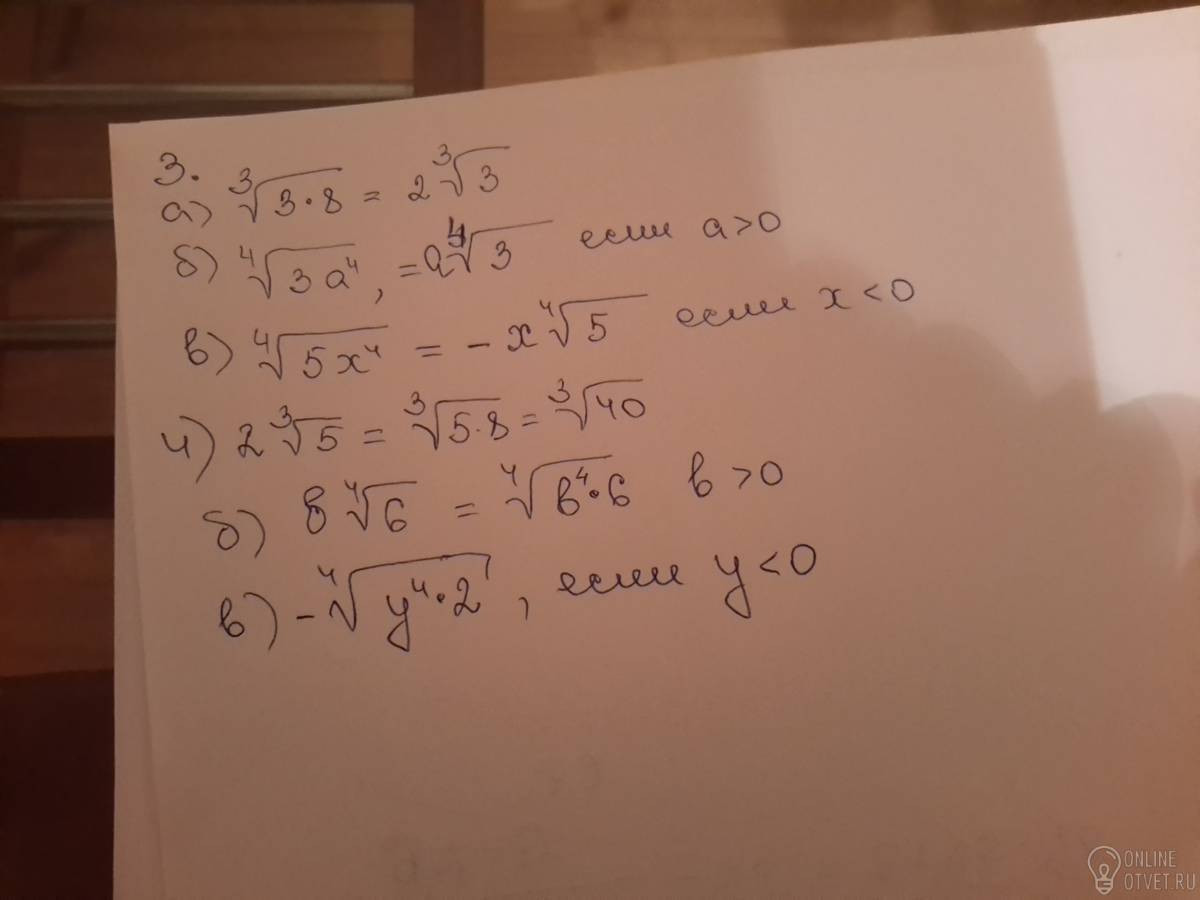 3.
а) ∛(3·8) = 2∛3
б) ∜(3a⁴), = a∜3 если a>0
в) ∜(5x⁴) = -x∜5 если x<0
4) 2∛5 = ∛(5·8) = ∛40
б) в∜6 = ∜(в⁴·6) в>0
в) -∜(y⁴·2), если y<0
ONLINE
OTVET.RU